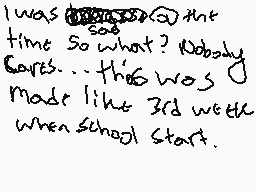 I was sad @ the
time so what? Nobody
Cares.... this was
made like 3rd week
when school start.